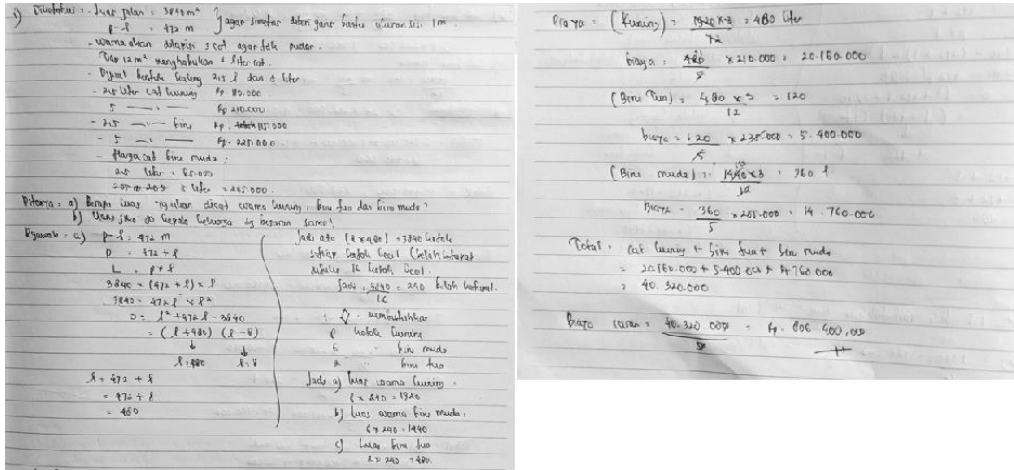 Diketahui : - Luas jalan = 3840 m²
p-l = 472 m
agar simetris diberi garis bantu ukuran sisi 1 m
- warna akan dilapisi 3 cat agar tdk pudar.
Tiap 12 m² menghabiskan 1 liter cat.
- Dijual bentuk kaleng 2,5 l dan 5 liter.
- 2,5 liter cat kuning Rp 110.000
5 Rp 210.000
- 2,5 biru Rp. 117.000
- 5 Rp. 225.000
- Harga cat biru muda :
2,5 liter =
5 liter = 205.000.
Ditanya : a) Berapa luas dicat warna kuning, biru tua dan biru muda?
b) iuran jika 50 kepala keluarga
Dijawab = a) p-l = 472 m
p = 472 + l
L = p × l
3840 = (472 + l) × l
3840 = 472 l + l²
0 = l² + 472 l - 3840
= (l + 480) (l - 8)
l = 480 l = 8
= 472 + 8
= 480
Jadi ada (8 x 480) = 3840 kotak
setiap kotak kecil (belah ketupat
16 kotak kecil.
Jadi = 3840 = 240 belah ketupat.
16
1 membutuhkan
8 kotak kuning
6 biru muda
2 biru tua
Jadi a) luas warna kuning =
8 x 240 = 1920
b) Luas warna biru muda =
6 x 240 = 1440
c) Luas biru tua
2 x 240 = 480.
Biaya = (Kuning) = 1920 x 3 = 480 liter
12
biaya = 480 x 210.000 = 20.160.000
5
(Biru Tua) = 480 x 3 = 120
12
biaya = 120 x 225.000 = 5.400.000
5
(Biru muda) = 1440 x 3 = 360 l
12
Biaya = 360 x 205.000 = 14.760.000
5
Total = cat kuning + biru tua + biru muda
= 20.160.000 + 5.400.000 + 14.760.000
= 40.320.000
Biaya iuran = 40.320.000 = Rp. 806.400,00
50